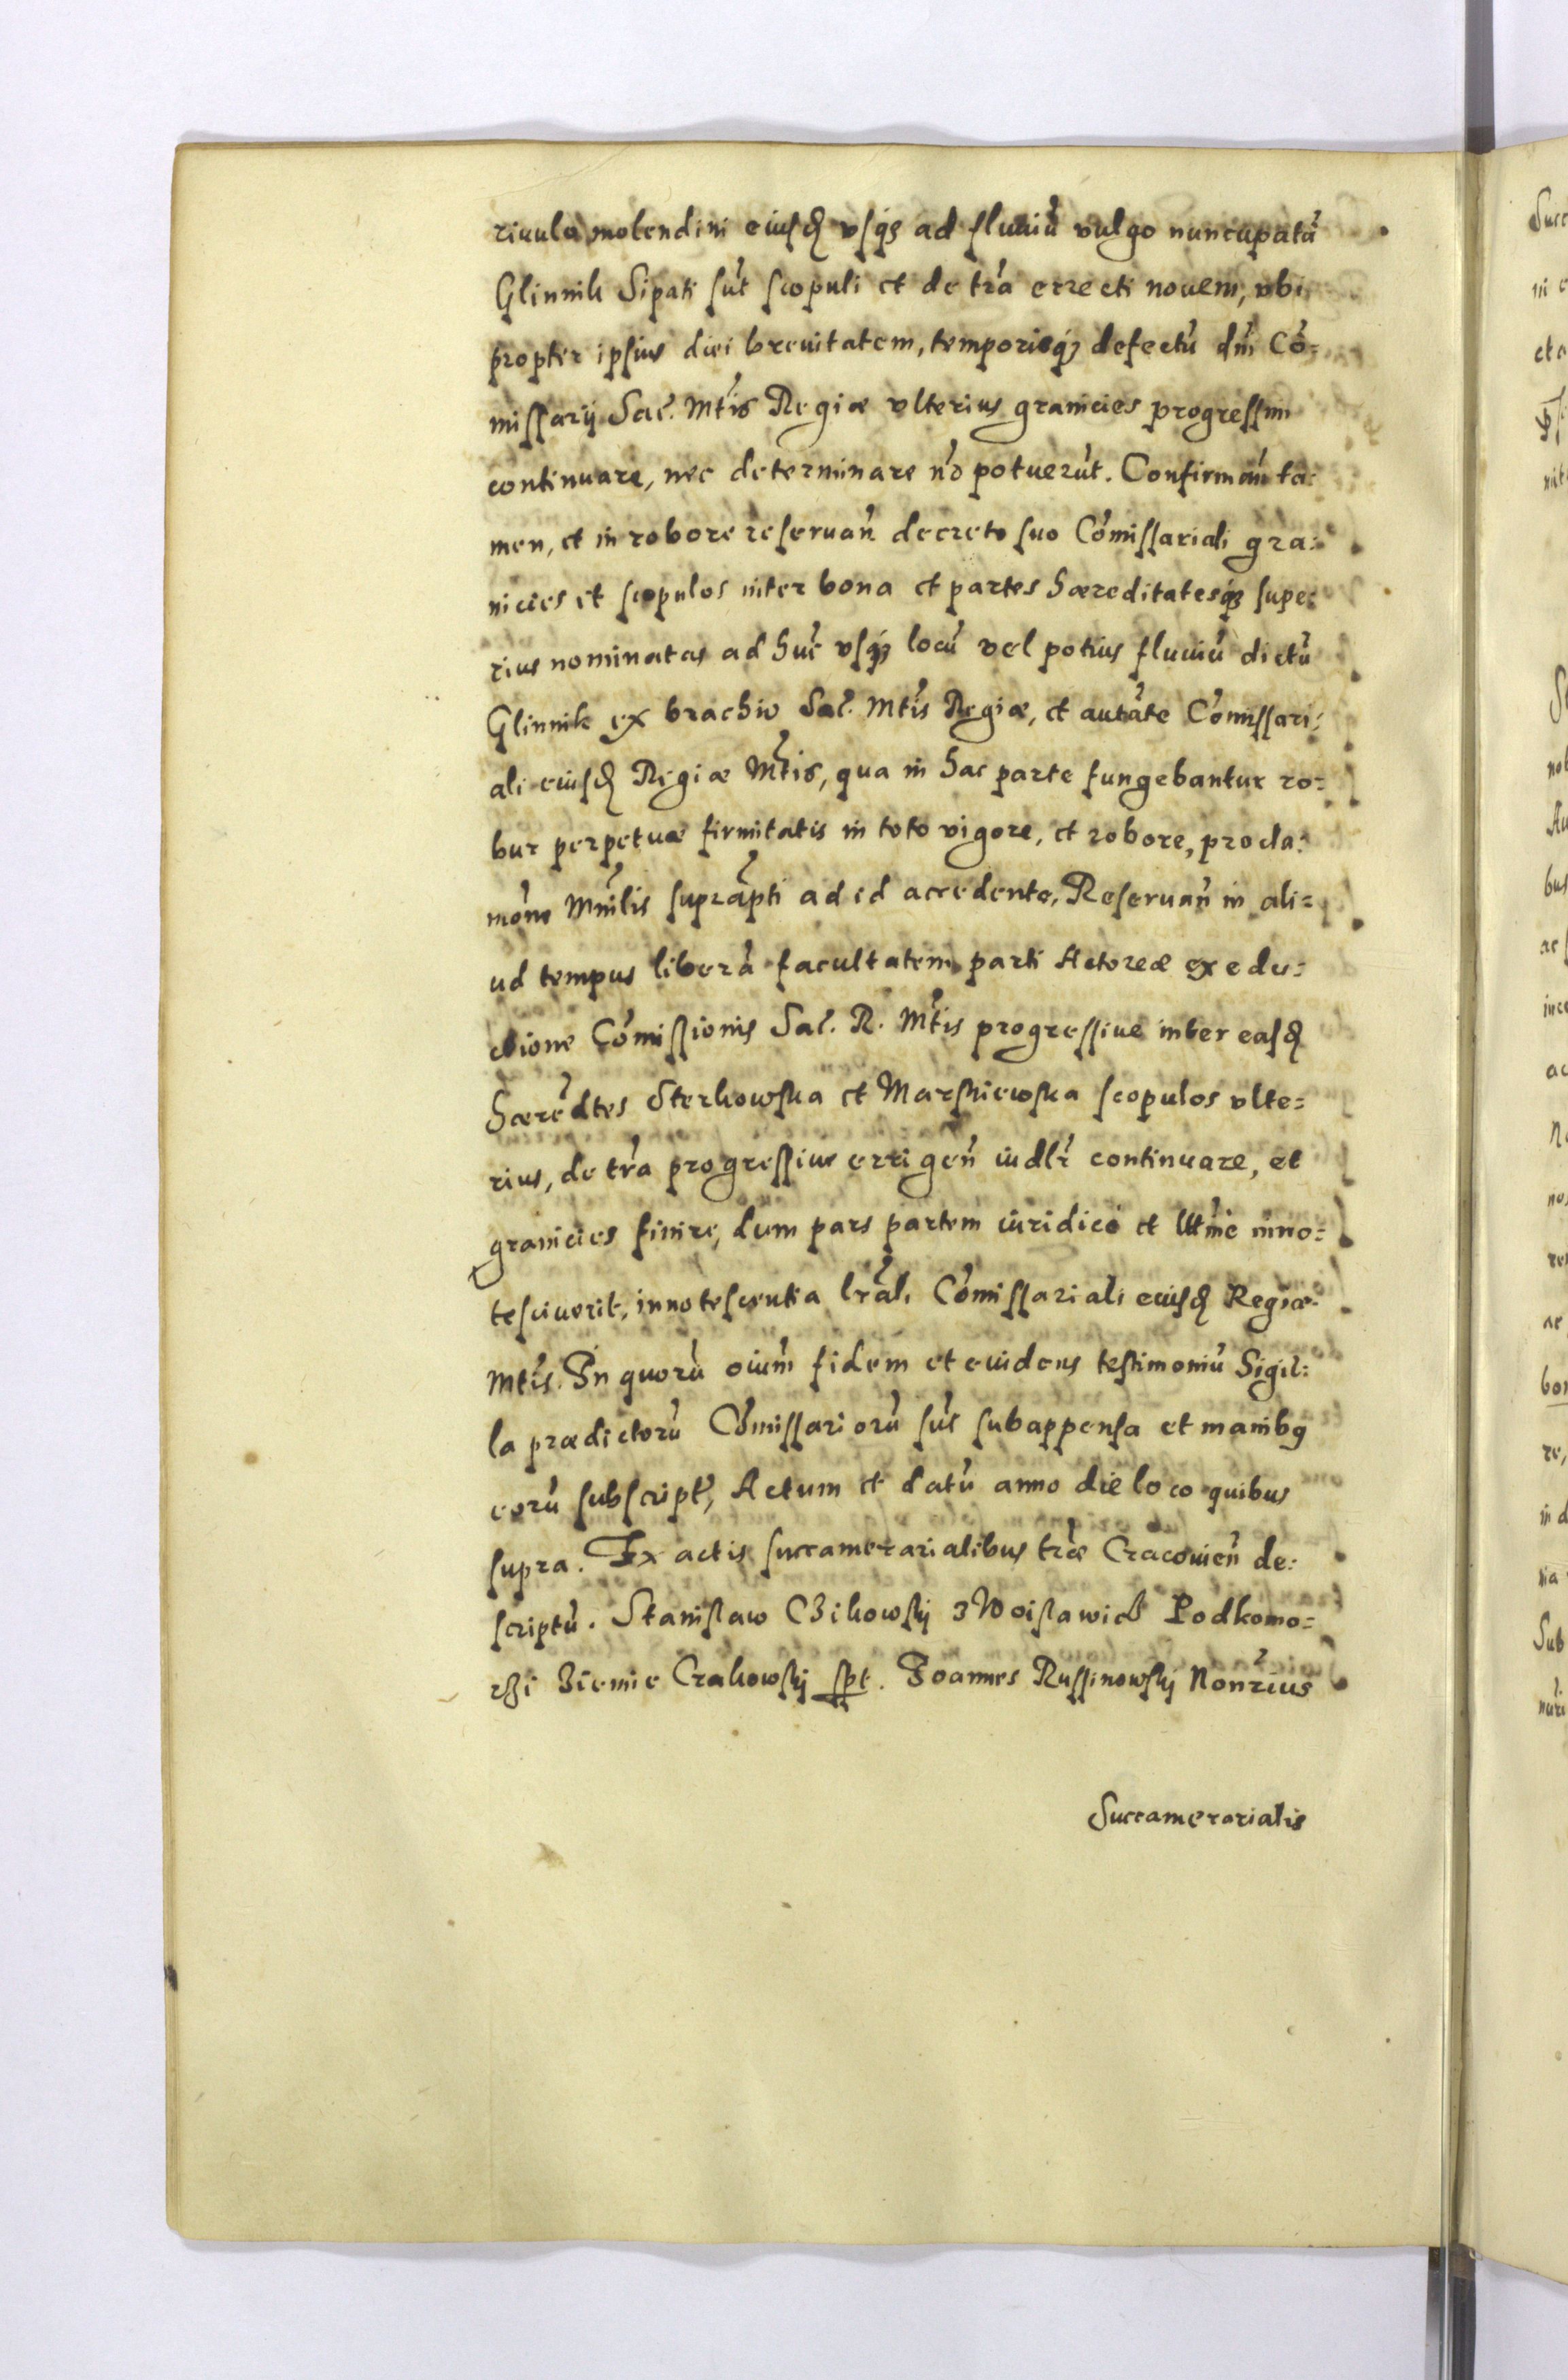 riuulo molendini eiusđ vsq3 ad fluuiũ vulgo nuncupatũ
Glinnik Sipati sũt scopuli et de tr̃a errecti nouem, vbi
propter ipsius diei breuitatem, temporisq3 defectũ dñi Cõ=
missarÿ Sac̃. Mtis Regiæ vlterius granicies progressim
continuare, nec determinare nõ potuerũt. Confirmañ ta=
men, et in robore reseruañ decreto suo Cõmissariali gra=
nicies et scopulos inter bona et partes hæreditatesq3 supe=
rius nominatas ad huc̃ vsq3 locũ vel potius fluuiũ dictũ
Glinnik ex brachio Sac̃. Mtis Regiæ, et autãte Cõmissari=
ali eiusđ Regiæ Mtis, qua in hac parte fungebantur ro=
bur perpetuæ firmitatis in toto vigore, et robore, procla=
mõne Mnĩlis suprãpti ad id accedente, Reseruañ in ali=
ud tempus liberã facultatem parti Actoreæ ex edu=
ctione Cõmissionis Sac̃. R. Mtis progressiue inter easđ
hærẽdtes Sterkowska et Marskiewska scopulos vlte=
rius, de tr̃a progressiue errigeñ iudlr̃ continuare, et
granicies finire, dum pars partem iuridicè et lttm̃e inno=
tesciuerit, innotescentia lrãli Cõmissariali eiusđ Regiæ
Mtis. In quorũ oium̃ fidem et euidens testimoniũ Sigil=
la prædictorũ Cõmissariorũ sũt subappensa et manib9
eorũ subscript̃, Actum et datũ anno die loco quibus
supra. Ex actis succamerarialibus tr̃æ Cracouieñ de=
scriptũ. Stanisław Czikowskj z Woisławicz Podkomo=
rzi Ziemie Crakowskj spt. Joannes Russinowskj Nonr̃ius
Succamerarialis